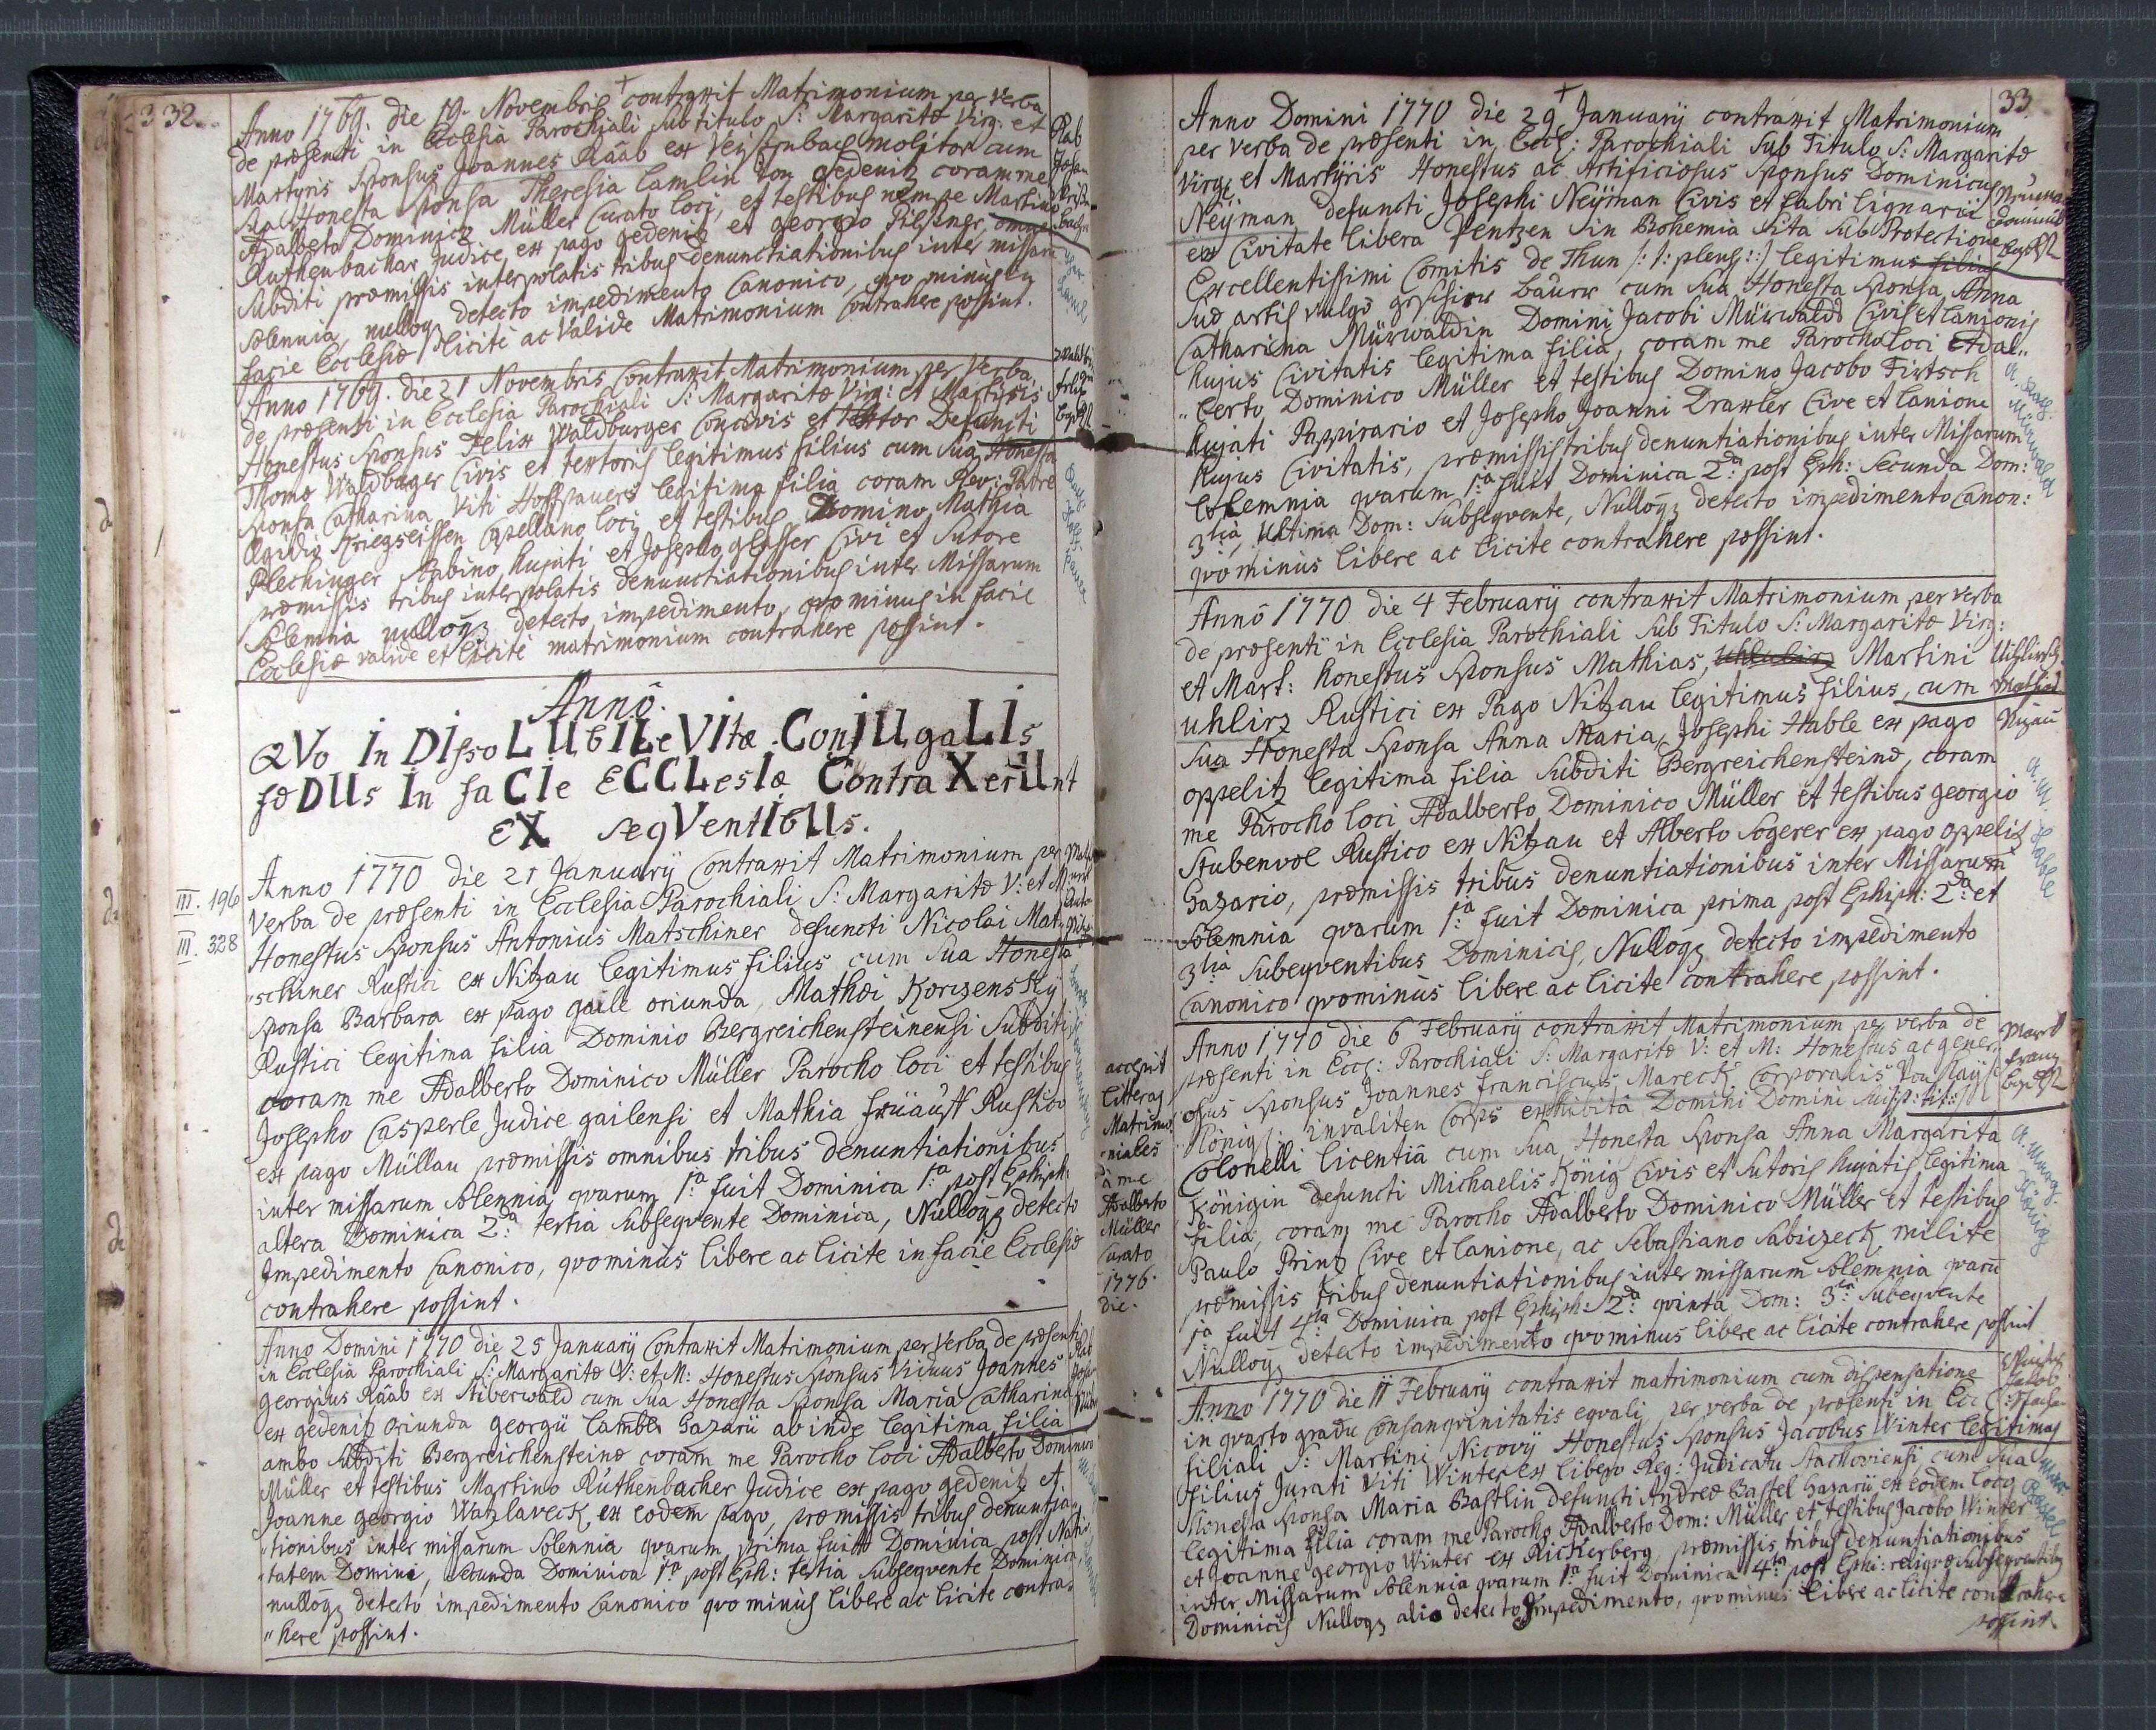 332.
Anno 1769. die 19. Novembris contraxit Matrimonium per verba
de præsenti in Ecclesia Parochiali Sub titulo S: Margaritæ Virg: et
Martyris Sponsus Joannes Rääb ex molitor cum
Sua Honesta Sponsa Theresia Lamlin von gedenitz coram me
Adalberto Dominico Müller Curato loci, et testibus nempe Martino
Ruthenbachar Judice ex pago gedenitz et georgio omnes
Subditi præmissis interpolatis tribus denunctiationibus inter missarū
solennia, nulloq; detecto impedimento Canonico, quo minus in
facie Ecclesiæ licitè ac Valide Matrimonium Contrahere possint.
Rab
Anno 1769. die 21 Novembris Contraxit Matrimonium per Verba
de præsenti in Ecclesia Parochiali S: Margaritæ Virg: et Martiris
Honestus Sponsus Felix Waldburger Concivis et textor Defuncti
Thomæ Waldbuger Civis et textoris legitimus filius cum Sua Honesta
Sponsa Catharina Viti Hoffpauers legitima filia coram Rev: Patre
Ægidio Kriegseissen Capellano loci, et testibus Domino Mathia
Plechinger hujati et Josepho glasser Civi et Sutore
præmissis tribus interpolatis denunctiationibus inter Missarum
solemnia nulloq; detecto impedimento, quo minus in facie
Ecclesiæ valide et licitè matrimonium contrahere possint.
Anno
QVo In DIssoLUbILe VItæ ConjUgaLIs
fœDUs In faCIe ECCLesIæ ContraXerUnt
EX seqVentIbUs.
III. 196
III. 328
Anno 1770 die 21 Januarÿ Contraxit Matrimonium per
Verba de præsenti in Ecclesia Parochiali S: Margaritæ V: et M
Honestus Sponsus Antonius Matschiner defuncti Nicolai Mat„
„schiner Rustici ex Nitzau legitimus filius cum Sua Honesta
Sponsa Barbara ex pago gaile oriunda, Mathæi Korzensky
Rustici legitima filia Dominio Bergreichensteinensi Subditi
coram me Adalberto Dominico Müller Parocho loci et testibus
Josepho Casperle Judice gailensi et Mathia früäuff Rustico
ex pago Müllau præmissis omnibus tribus denuntiationibus
inter missarum solennia, quarum 1.a fuit Dominica 1.a post Ephiph:
altera Dominica 2.da tertia Subsequente Dominica, Nulloq; detecto
Impedimento Canonico, quominus libere ac licite in facie Ecclesiæ
contrahere possint.
Anno Domini 1770 die 25 January Contraxit Matrimonium per Verba de præsenti
in Ecclesia Parochiali S: Margaritæ V: et M: Honestus Sponsus Viduus Joannes
Georgius Rääb ex Stiberwald cum Sua Honesta Sponsa Maria Catharina
ex gedenitz oriunda georgii Lambes Gazarii ab inde legitima filia
ambo Subditi Bergreichensteinæ coram me Parocho loci Adalberto Dominico
Müller et testibus Martino Ruthenbacher Judice ex pago gedenitz et
Joanne georgio Watzlaveck ex eodem pago, præmissis tribus denuntia„
„tionibus inter missarum solennia quarum prima fuit Dominica post Nativi„
„tatem Domini, secunda Dominica 1.a post Eph: tertia Subsequente Dominica,
nulloq; detecto impedimento Canonico quo minus libere ac licite contra„
„here possint.
accepit
litteras
Matrimo
niales
à me
Adalberto
Müller
Curato
1776.
die.
33.
Anno Domini 1770 die 29 Januarÿ contraxit Matrimonium
per verba de præsenti in Eccl: Parochiali Sub Titulo S: Margaritæ
Virg: et Martÿris Honestus ac Artificiosus Sponsus Dominicus
Neÿman defuncti Josephi Neÿman Civis et fabri lignarii
ex Civitate libera Pentzen in Bohemia Sita Sub Protectione
Excellentissimi Comitis de Thun /: /: plens: :/ legitimus filius
Suæ artis vulgo geschierr bauer cum Sua Honesta Sponsa Anna
Catharina Mürwaldin Domini Jacobi Mürwald Civis et lanionis
hujus Civitatis legitima filia, coram me Parocho loci Adal„
„berto Dominico Müller et testibus Domino Jacobo Firtsch
hujati Pappirario et Josepho Joanni Draxler Cive et lanione
hujus Civitatis, præmissis tribus denuntiationibus inter Missarum
Solemnia quarum 1.a fuit Dominica 2.da post Eph: Secunda Dom:
3tia, Ultima Dom: Subsequente, Nulloq; detecto impedimento Canon:
quominus libere ac licite contrahere possint.
Anno 1770 die 4 Februarÿ contraxit Matrimonium per verba
de præsenti in Ecclesia Parochiali Sub Titulo S: Margaritæ Virg:
et Mart: honestus Sponsus Mathias, Martini
uhlirz Rustici ex Pago Nitzau legitimus filius, cum
Sua Honesta Sponsa Anna Maria, Josephi Hable ex pago
oppelitz legitima filia Subditi Bergreichensteinæ, coram
me Parocho loci Adalberto Dominico Müller et testibus georgio
Stubenvol Rustico ex Nitzau et Alberto Sogerer ex pago oppelitz
Gazario, præmissis tribus denuntiationibus inter Missarum
Solemnia quarum 1.a fuit Dominica prima post Ephiph: 2.da et
3tia Subequentibus Dominicis, Nulloq; detecto impedimento
Canonico quominus libere ac licite contrahere possint.
Nizau
A. M. Hable
Anno 1770 die 6 Februarÿ contraxit Matrimonium per verba de
præsenti in Eccl: Parochiali S: Margaritæ V: et M: Honestus ac gener„
osus Sponsus Joannes franciscus Mareck Corporalis von Kaÿs:
Königl: invaliten Corps exhibita Domini Domini Sui /:p: tit: :/
Colonelli licentiâ cum Sua Honesta Sponsa Anna Margarita
Königin defuncti Michaelis König Civis et Sutoris hujatis legitima
filia, coram me Parocho Adalberto Dominico Müller et testibus
Paulo Prinz Cive et lanione, ac Sebastiano Sabizeck milite
præmissis tribus denuntiationibus inter missarum solemnia quarū
1a fuit 4ta Dominica post Ephiph: 2.da quinta Dom: 3.tia Subequente
Nulloq; detecto impedimento quominus libere ac licite contrahere possint
A. Marg. König
Anno 1770 die 11 Februarÿ contraxit matrimonium cum dispensatione
in quarto gradu Consanquinitatis equali per verba de præsenti in Eccl:
filiali S: Martini Nicovÿ Honestus Sponsus Jacobus Winter legitimus
filius Jurati Viti Winter ex libero Reg: Judicatu Stachoviensi, cum Sua
Honesta Sponsa Maria Bastlin defuncti Andreæ Bastel Gazarii ex eodem loco
legitima filia coram me Parocho Adalberto Dom: Müller et testibus Jacobo Winter
et Joanne georgio Winter ex Richerberg, præmissis tribus denuntiationibus
inter Missarum solennia quarum 1.a fuit Dominica 4.ta post Ephi: reliquæ Subsequentibus
Dominicis Nulloq; alio detecto Impedimento, quominus libere ac licite contrahere
possint.